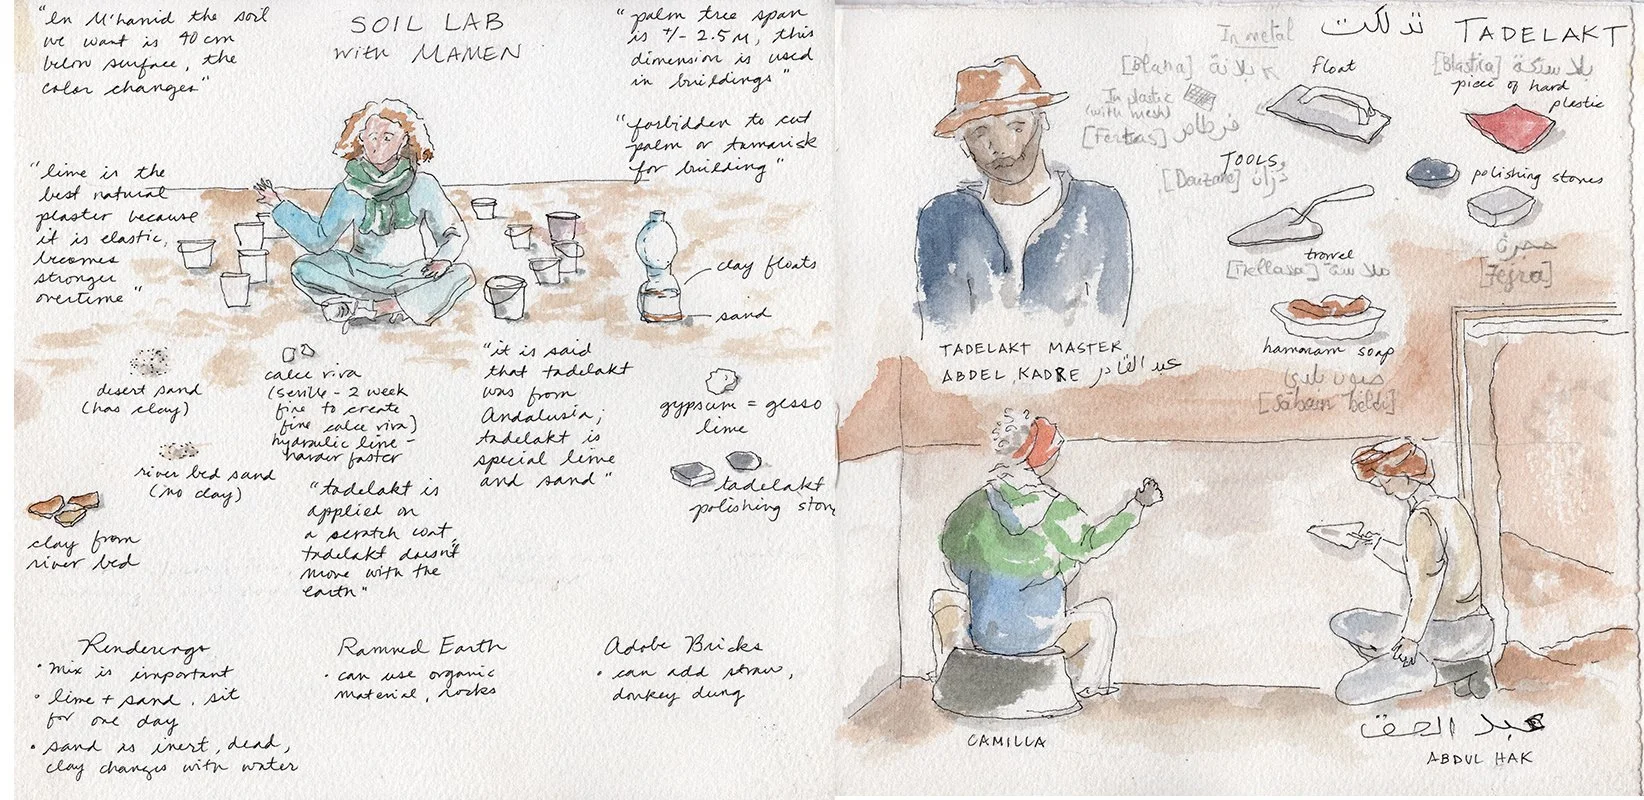 "En M'hamid the soil
we want is 40 cm
below surface, the
color changes"
SOIL LAB
with MAMEN
"palm tree span
is +/- 2.5 M, this
dimension is used
in buildings"
"forbidden to cut
palm or tamarisk
for building"
"lime is the
best natural
plaster because
it is elastic,
becomes
stronger
overtime"
clay floats
sand
desert sand
(has clay)
river bed sand
(no clay)
clay from
river bed
calce viva
(Seville - 2 week
fire to create
fine calce viva)
hydraulic lime -
harder faster
"it is said
that tadelakt
was from
Andalusia;
tadelakt is
special lime
and sand"
"tadelakt is
applied on
a scratch coat,
tadelakt doesn't
move with the
earth"
gypsum = gesso
lime
tadelakt
polishing stone
Renderings
• mix is important
• lime + sand, sit
for one day
• sand is inert, dead,
clay changes with water
Rammed Earth
• can use organic
material, rocks
Adobe Bricks
• can add straw,
donkey dung
تدلكت TADELAKT
In metal
[Blana] بلانة
In plastic
(with mesh)
[Fertas] فرطاس
TOOLS
float
[Blastica] بلاستكة
piece of hard
plastic
polishing stones
حجرة
trowel
[Mellasa] ملاسة
hammam soap
صبون بلدي
[Saboun beldi]
TADELAKT MASTER
ABDEL KADRE عبد القادر
CAMILLA
عبد الحق
ABDUL HAK